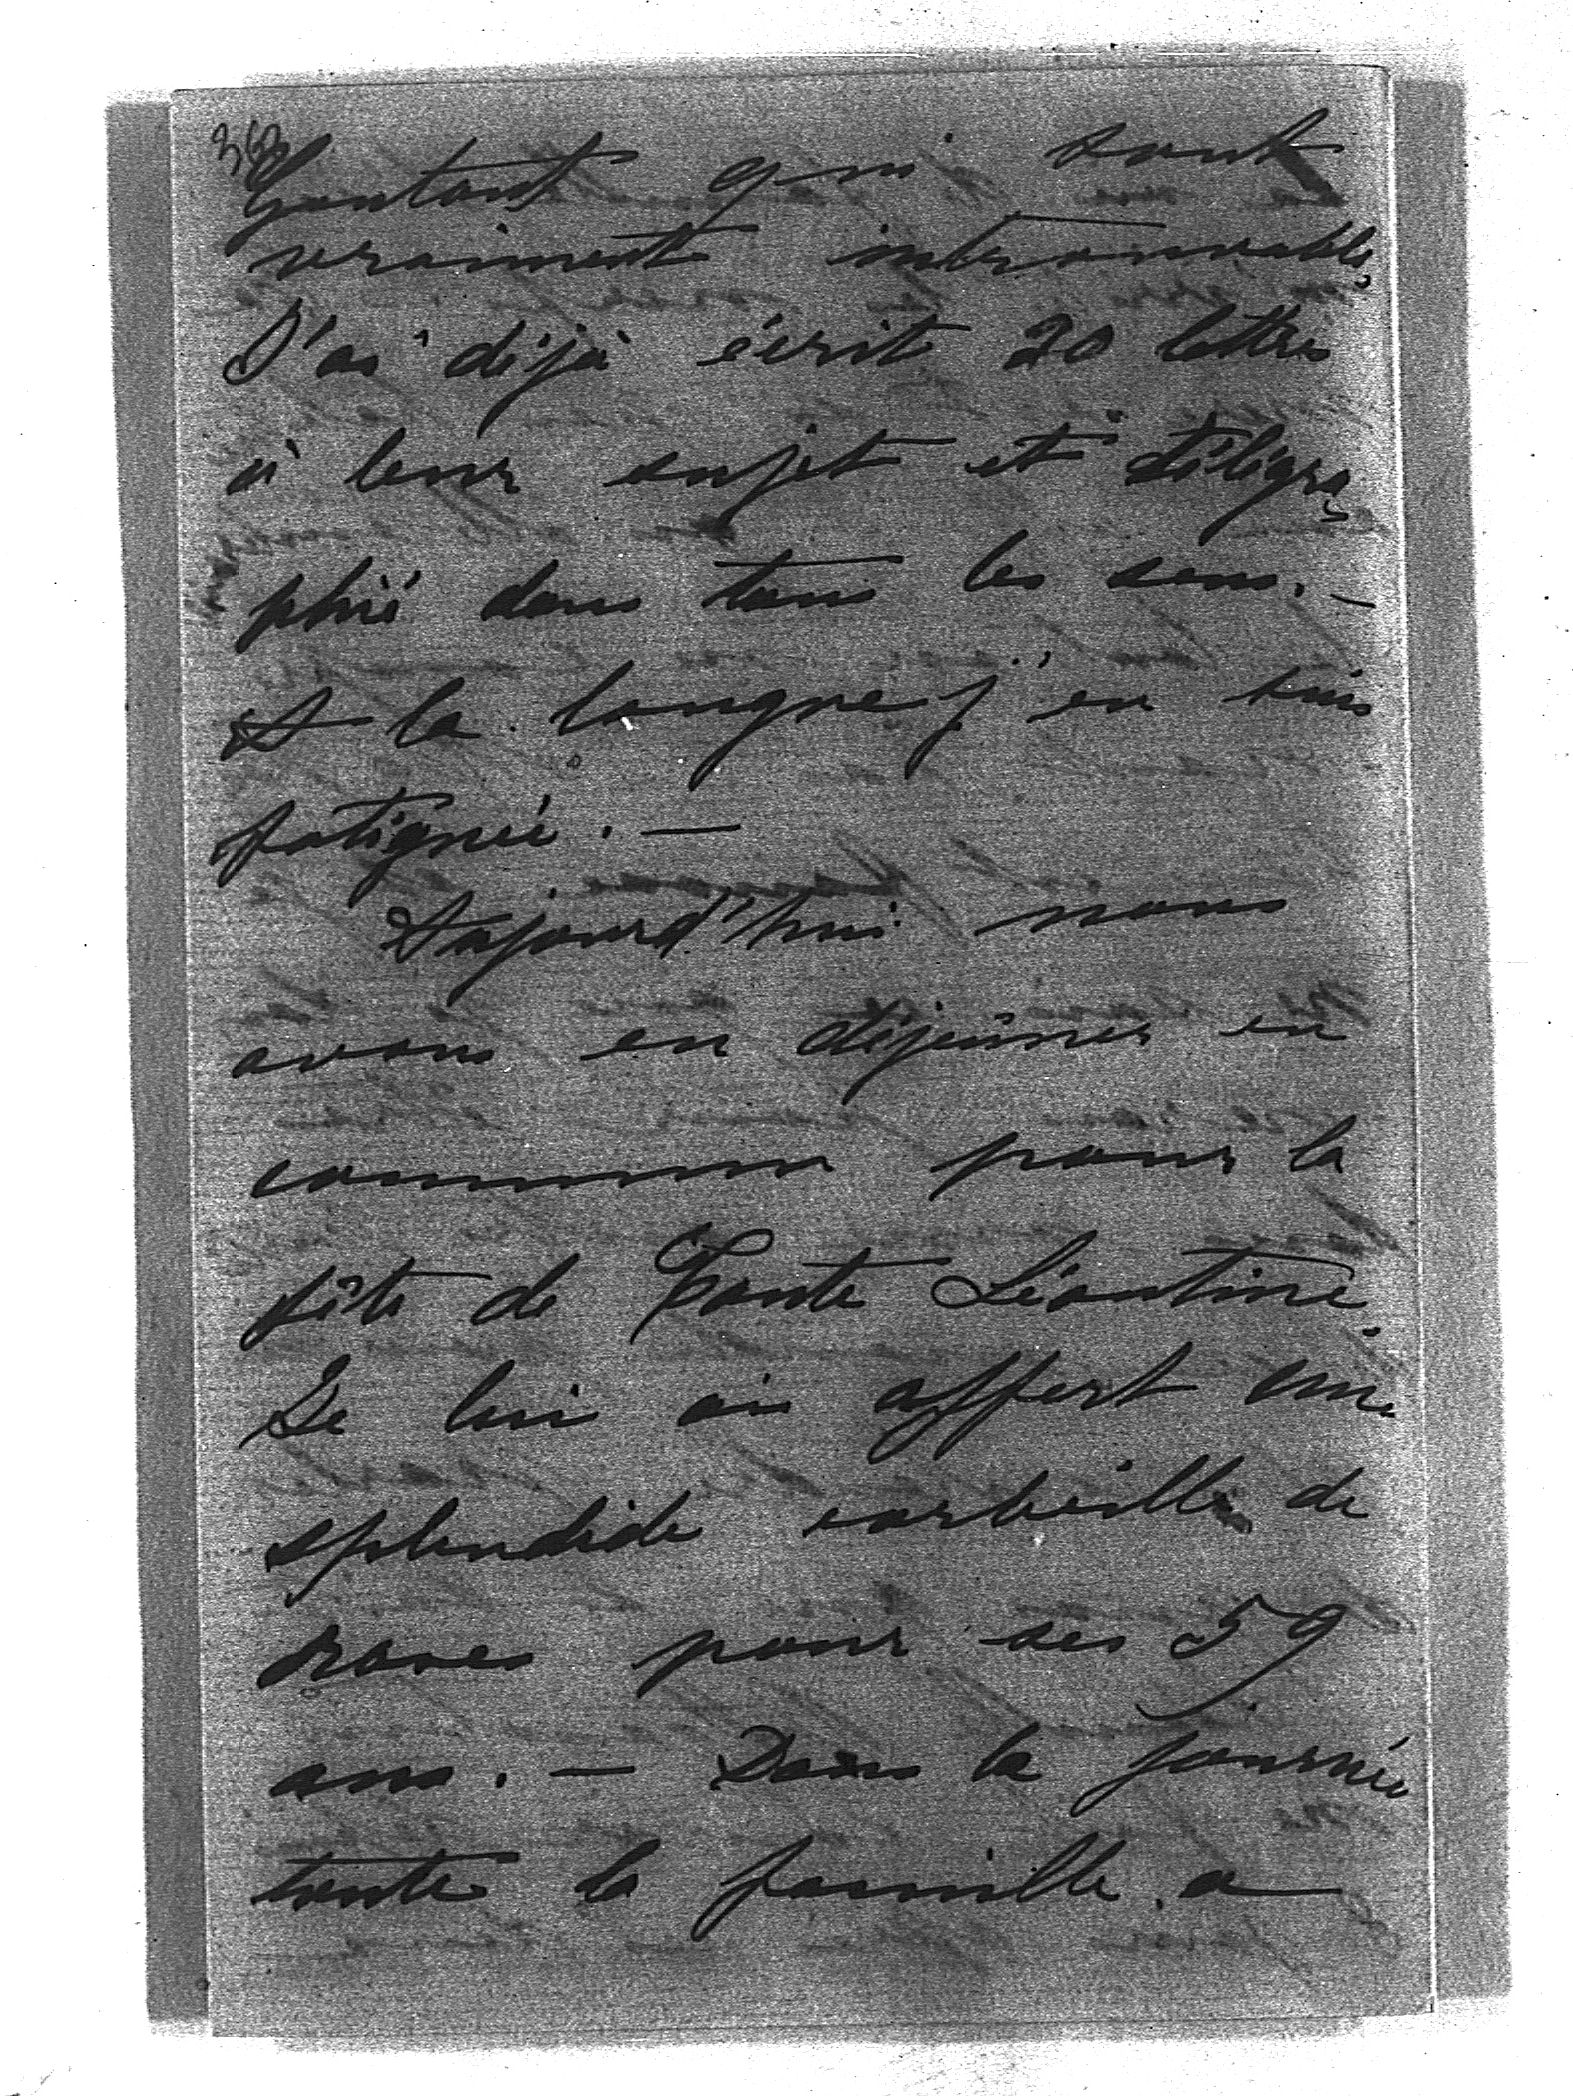 363
Gontard qui sont
vraiment introuvables.
J'ai déjà écrit 20 lettres
à leur sujet et télégra-
phié dans tous les sens. —
A la longue j'en suis
fatiguée. —
Aujourd'hui nous
avons eu déjeuner en
commun pour la
fête de Tante Léontine.
Je lui ai offert une
splendide corbeille de
roses pour ses 59
ans. — Dans la journée
toute la famille a